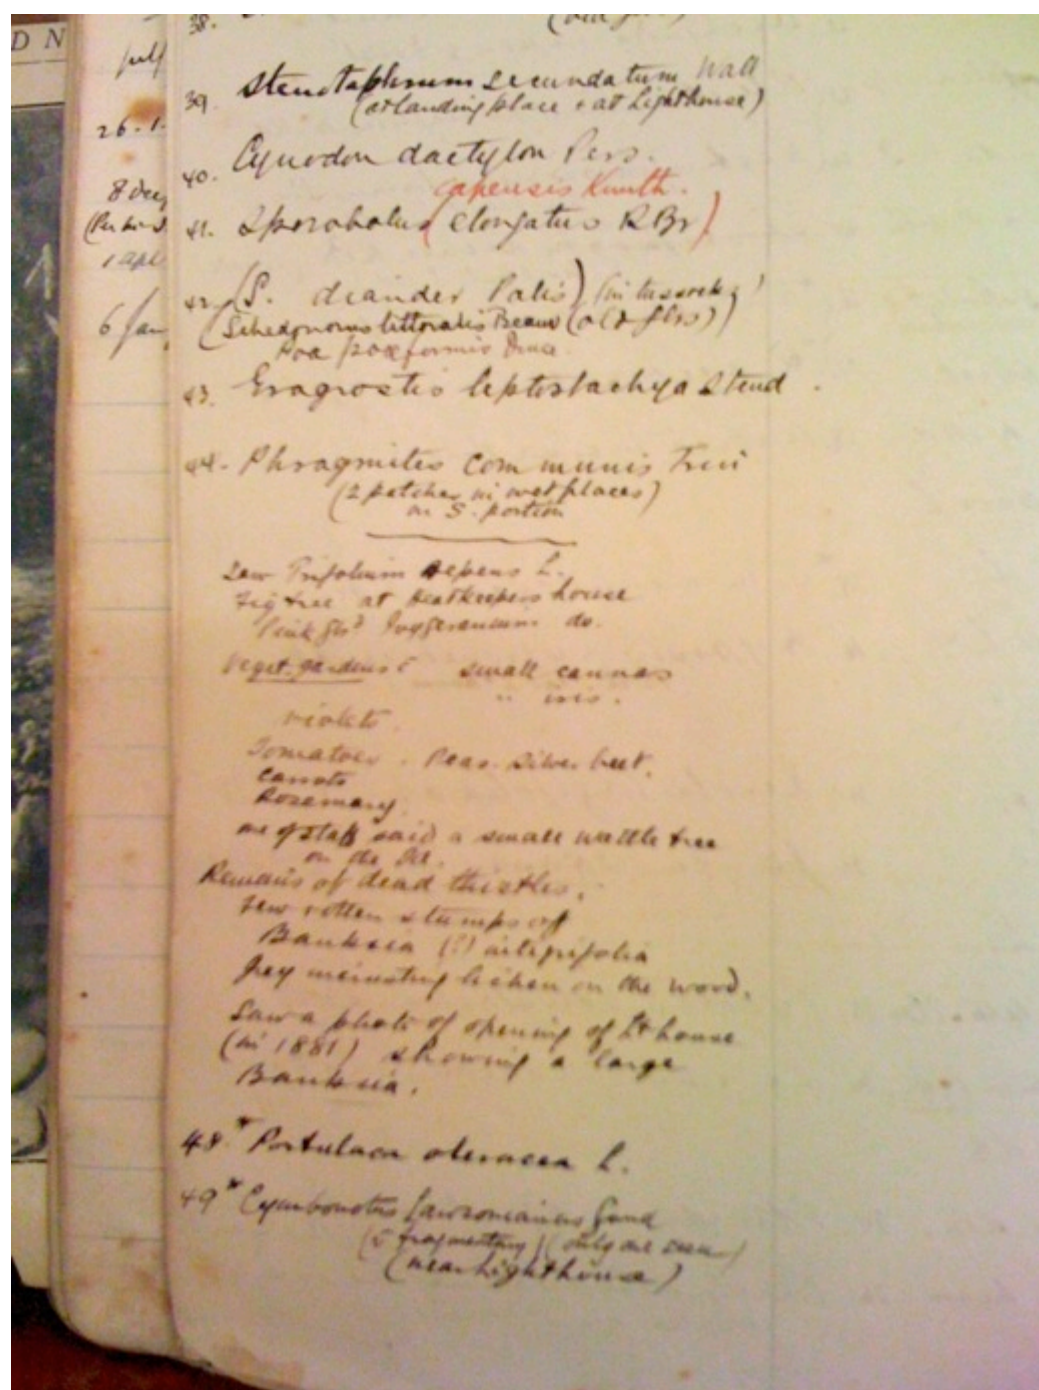 D N
38.
39. Stenotaphrum secundatum Wall
(at landing place & at Lighthouse)
40. Cynodon dactylon Pers.
capensis Kunth.
41. Sporobolus (elongatus R Br)
42. (S. diander Palis) (in tussocks)
(Schedonorus littoralis Beauv (old flrs))
Poa poaeformis Druce
43. Eragrostis leptostachya Steud.
44. Phragmites communis Trin
(2 patches in wet places)
on S. portion
Saw Trifolium repens L.
Fig tree at house
Pink Ivy geranium do.
Veget. gardens: small cannas
" iris.
violets.
Tomatoes. Peas. Silver beet.
Carrots
Rosemary
one of staff said a small wattle tree
on the
Remains of dead thistles.
few rotten stumps of
Banksia (?) integrifolia
grey lichen on the wood.
Saw a photo of opening of Lt house
(in 1881) showing a large
Banksia.
48.* Portulaca oleracea L.
49* Cymbonotus Lawsonianus Gaud
(fragmentary) (only one seen)
(near Lighthouse)
26.1.
8 Dec
6 Jan